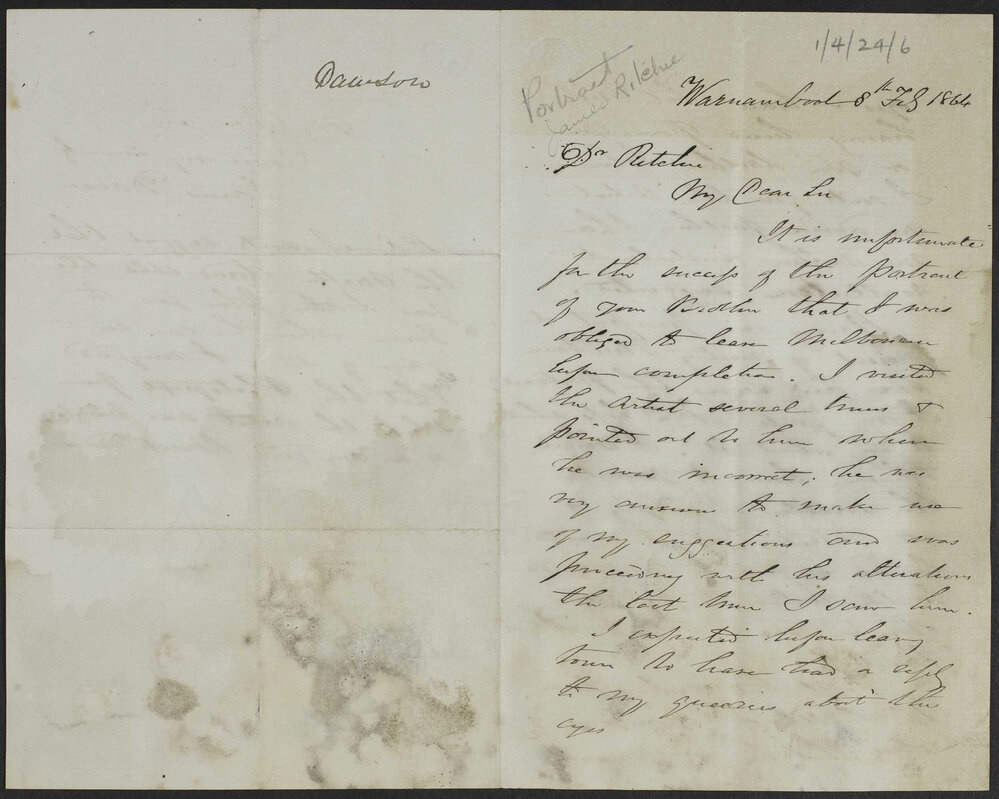 Dawson
1/4/24/6
Portrait
James Ritchie
Warnambool 8th Feb 1864
Dr Ritchie
My Dear Sir
It is unfortunate
for the success of the portrait
of your Brother that I was
obliged to leave Melbourne
before completion. I visited
the artist several times &
pointed out to him where
he was incorrect; he was
very anxious to make use
of my suggestions and was
proceeding with his alterations
the last time I saw him.
I expected before leaving
town to have had a reply
to my queeries about the
eyes